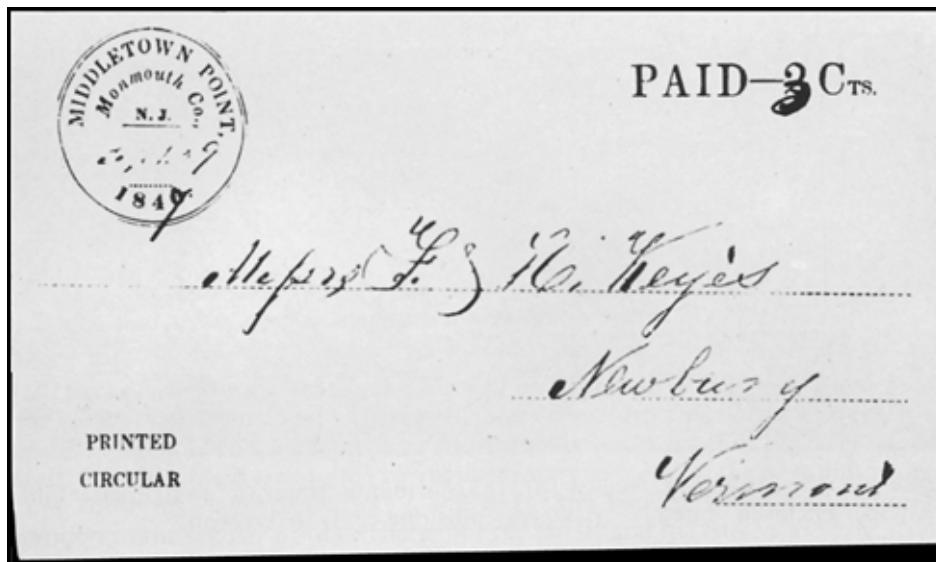 MIDDLETOWN POINT,
Monmouth Co.,
N. J.
184
PAID—3 CTS.
Messrs F. & H. Keyes
Newbury
Vermont
PRINTED
CIRCULAR